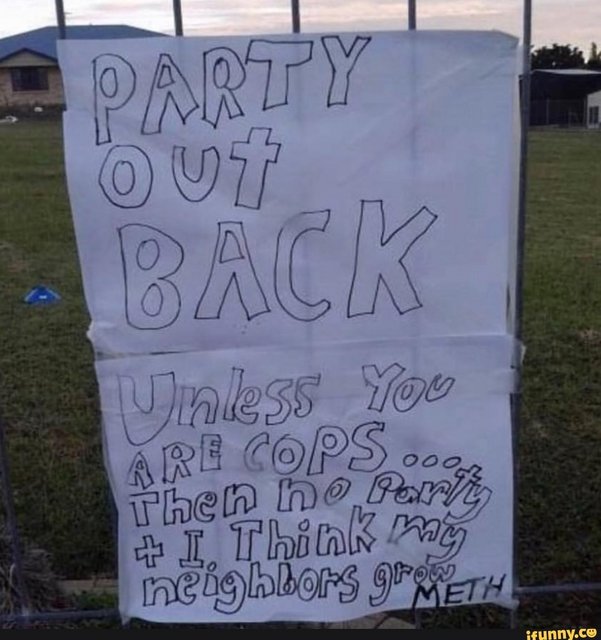 PARTY
OUT
BACK
Unless You
ARE COPS...
Then no Party
+ I Think my
neighbors grow
METH
ifunny.ce